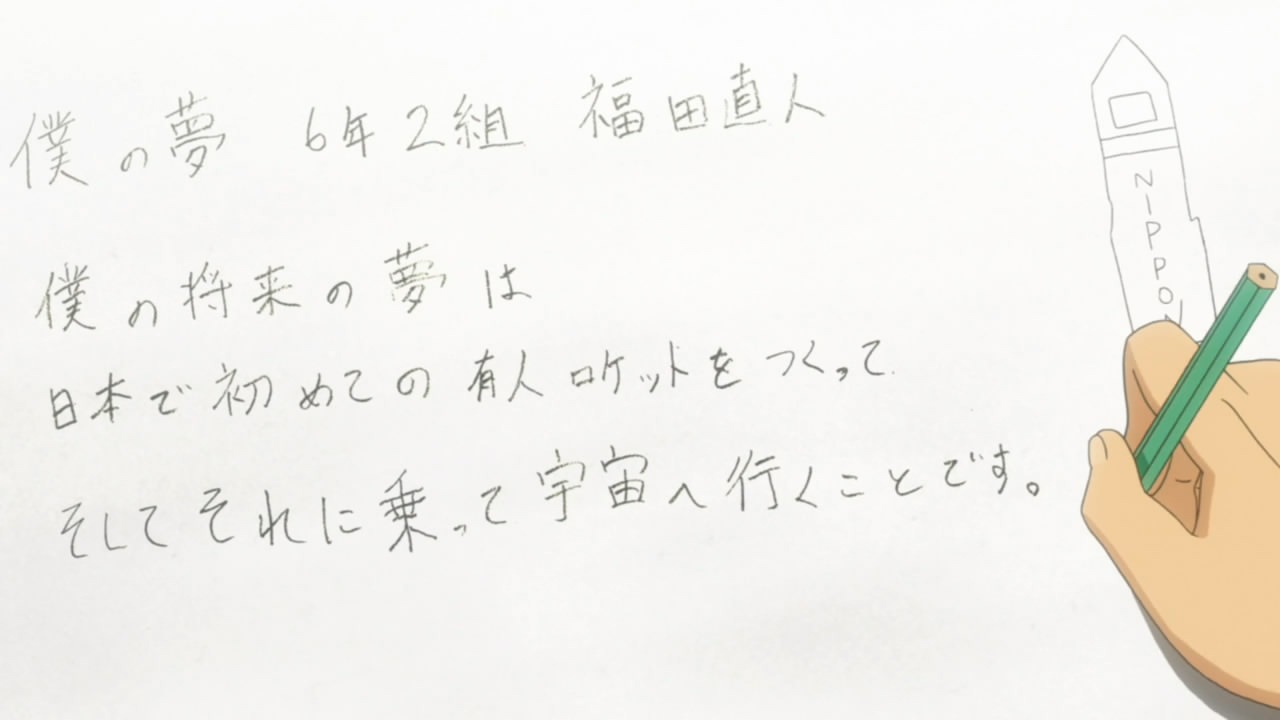 僕の夢 6年2組 福田直人
僕の将来の夢は
日本で初めての有人ロケットをつくって
そしてそれに乗って宇宙へ行くことです。
NIPPON